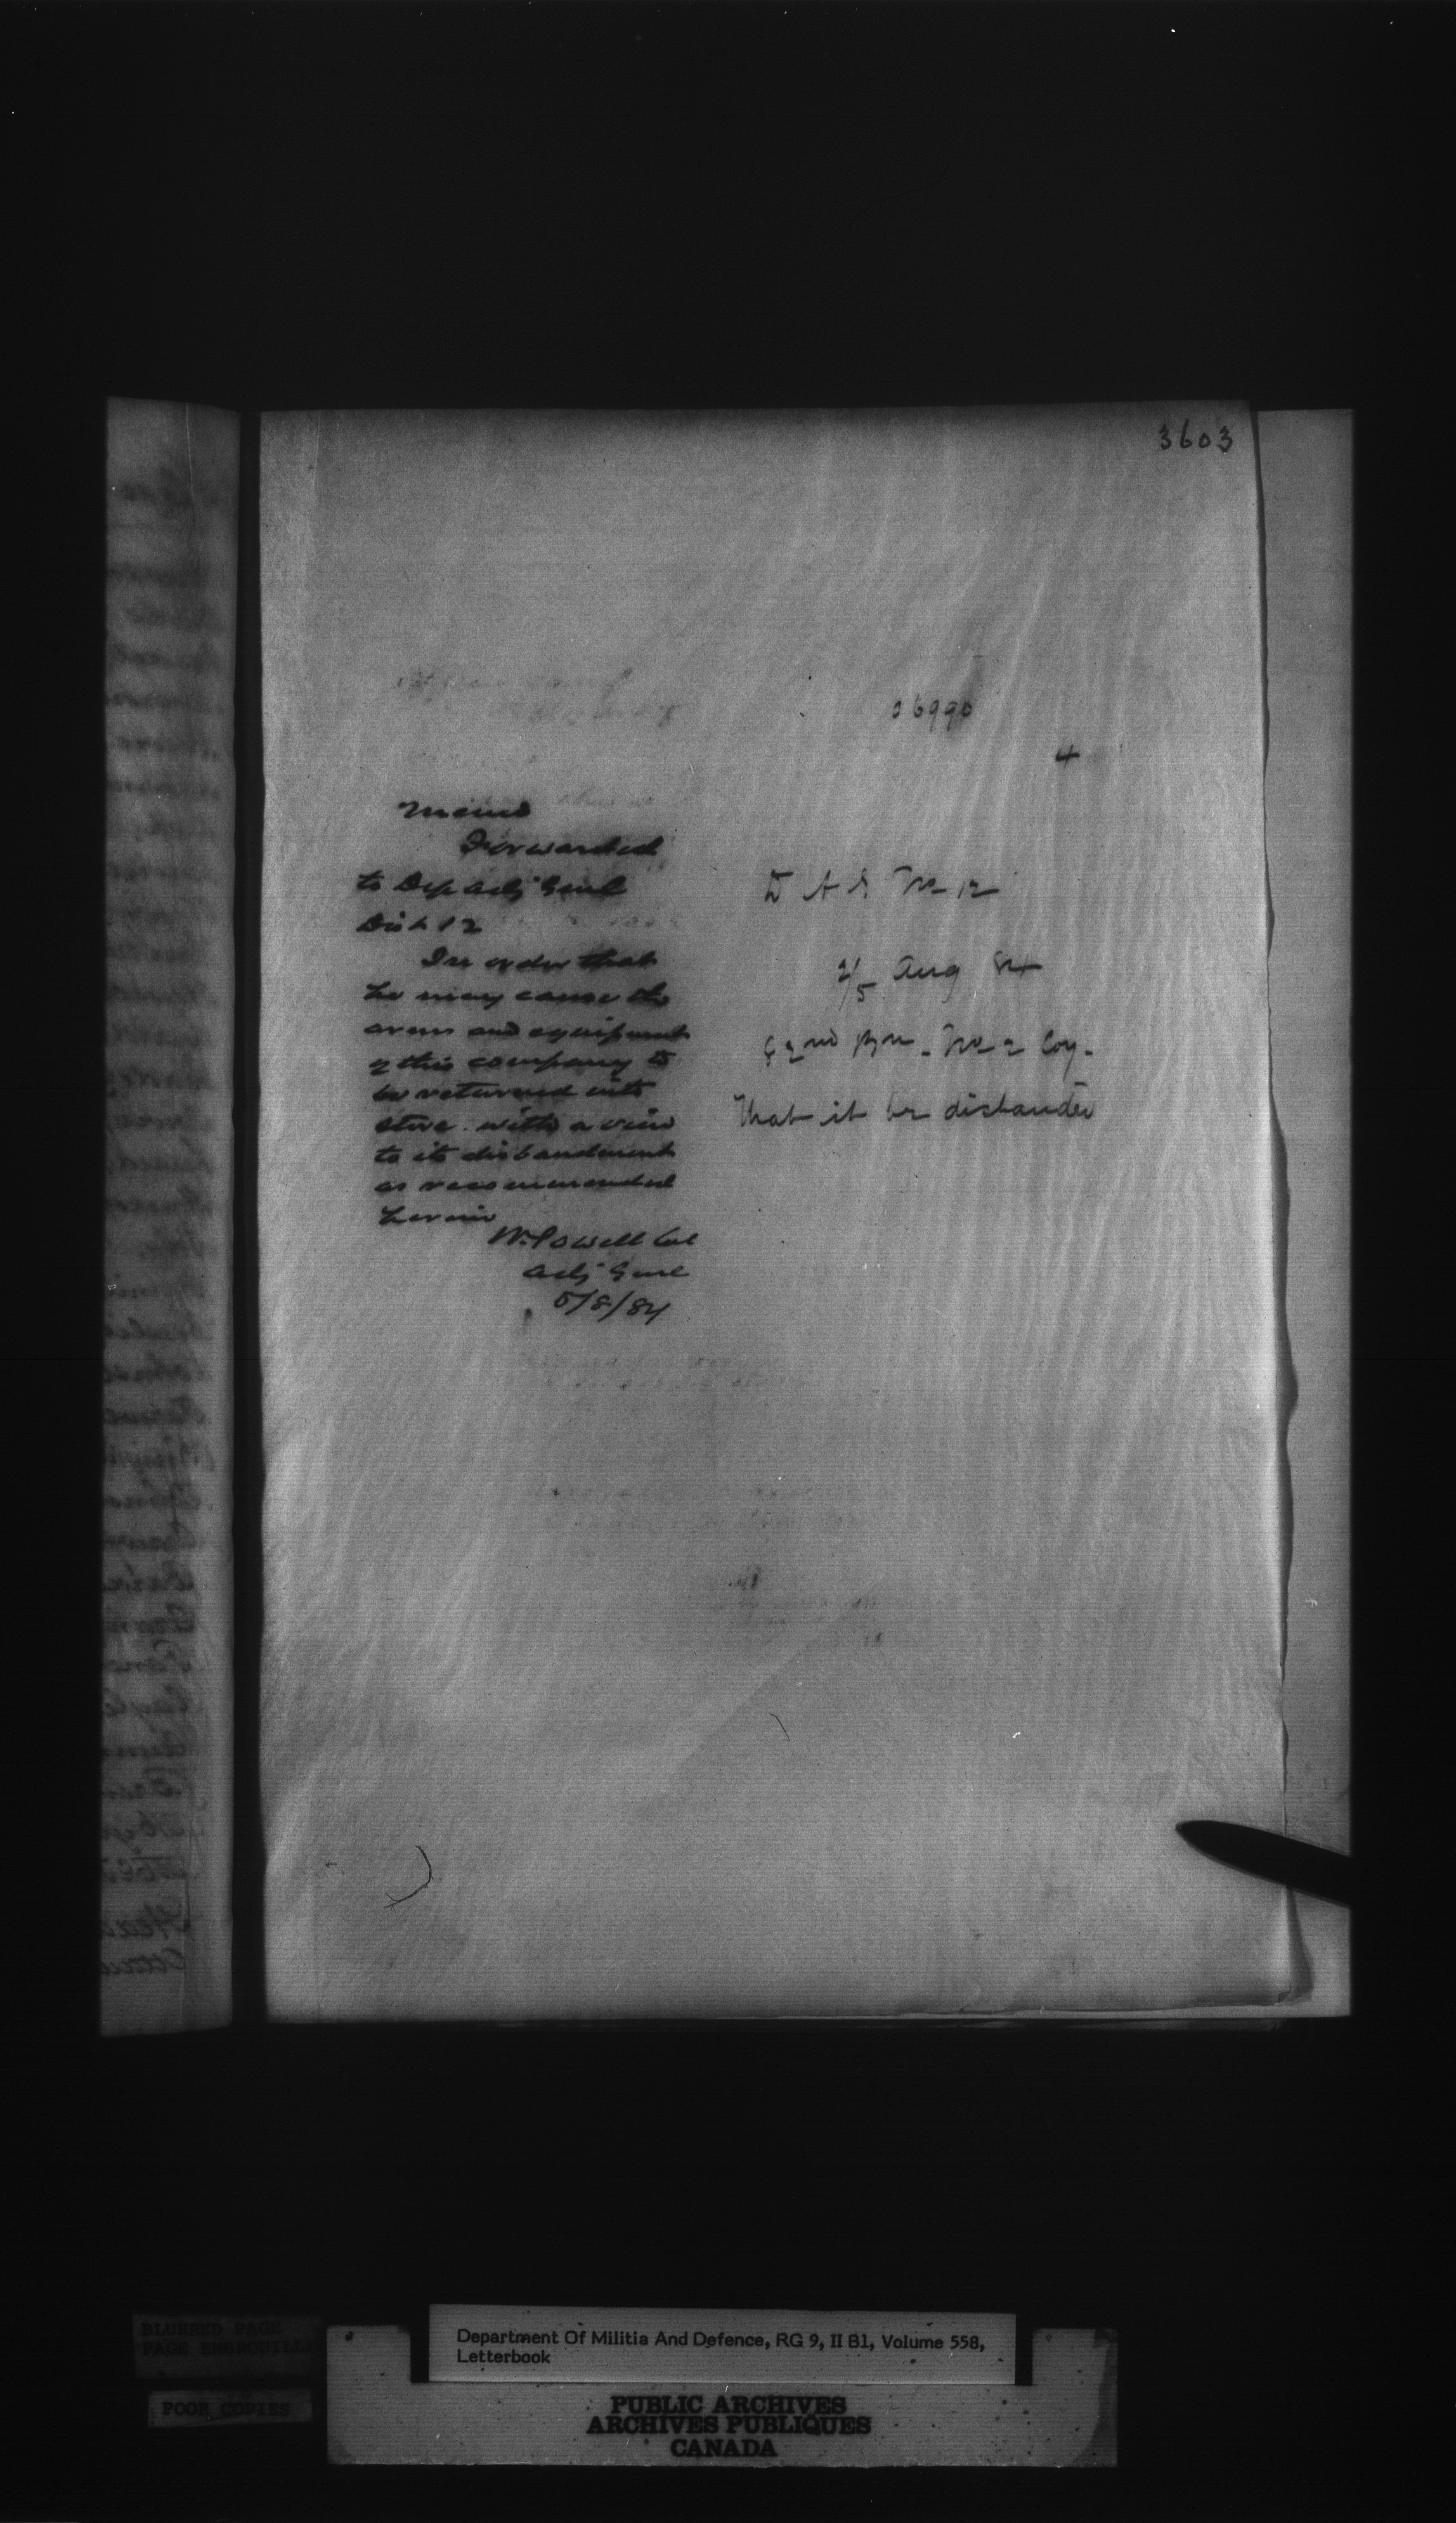 3603
06990
4
Memo
Forwarded
to Dep Adj Genl
Dist 12
In order that
he may cause the
arms and equipment
of this company to
be returned into
store with a view
to its disbandment
as recommended
herein
W. Powell Col
Adj Genl
5/8/84
D A G No 12
2/5 Aug 84
62nd Bn - No 2 Coy -
That it be disbanded
BLURRED PAGE
PAGE EMBROUILL
POOR COPIES
Department Of Militia And Defence, RG 9, II B1, Volume 558,
Letterbook
PUBLIC ARCHIVES
ARCHIVES PUBLIQUES
CANADA